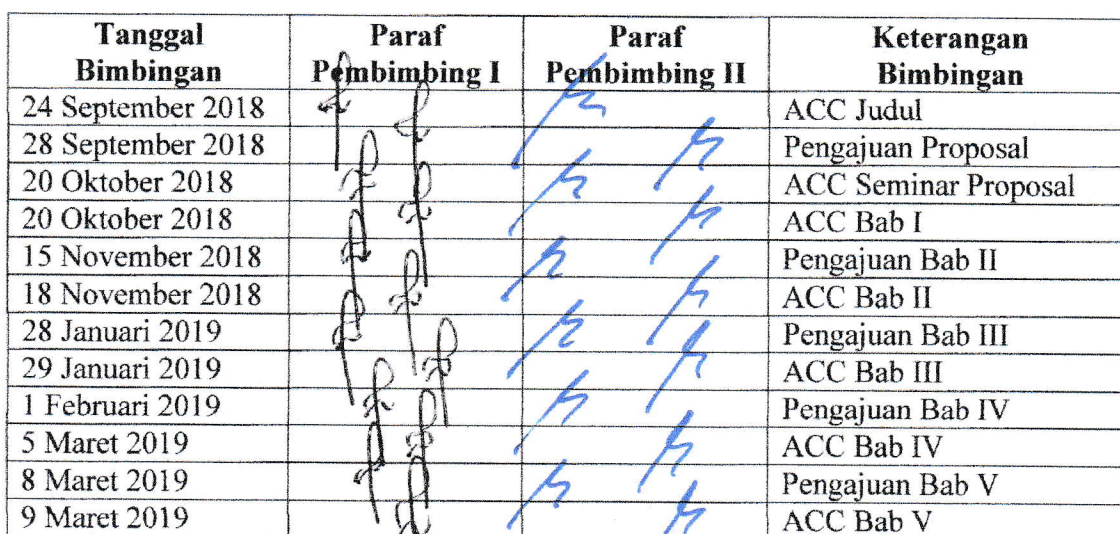 Tanggal Bimbingan Paraf Pembimbing I Paraf Pembimbing II Keterangan Bimbingan
24 September 2018 ACC Judul
28 September 2018 Pengajuan Proposal
20 Oktober 2018 ACC Seminar Proposal
20 Oktober 2018 ACC Bab I
15 November 2018 Pengajuan Bab II
18 November 2018 ACC Bab II
28 Januari 2019 Pengajuan Bab III
29 Januari 2019 ACC Bab III
1 Februari 2019 Pengajuan Bab IV
5 Maret 2019 ACC Bab IV
8 Maret 2019 Pengajuan Bab V
9 Maret 2019 ACC Bab V